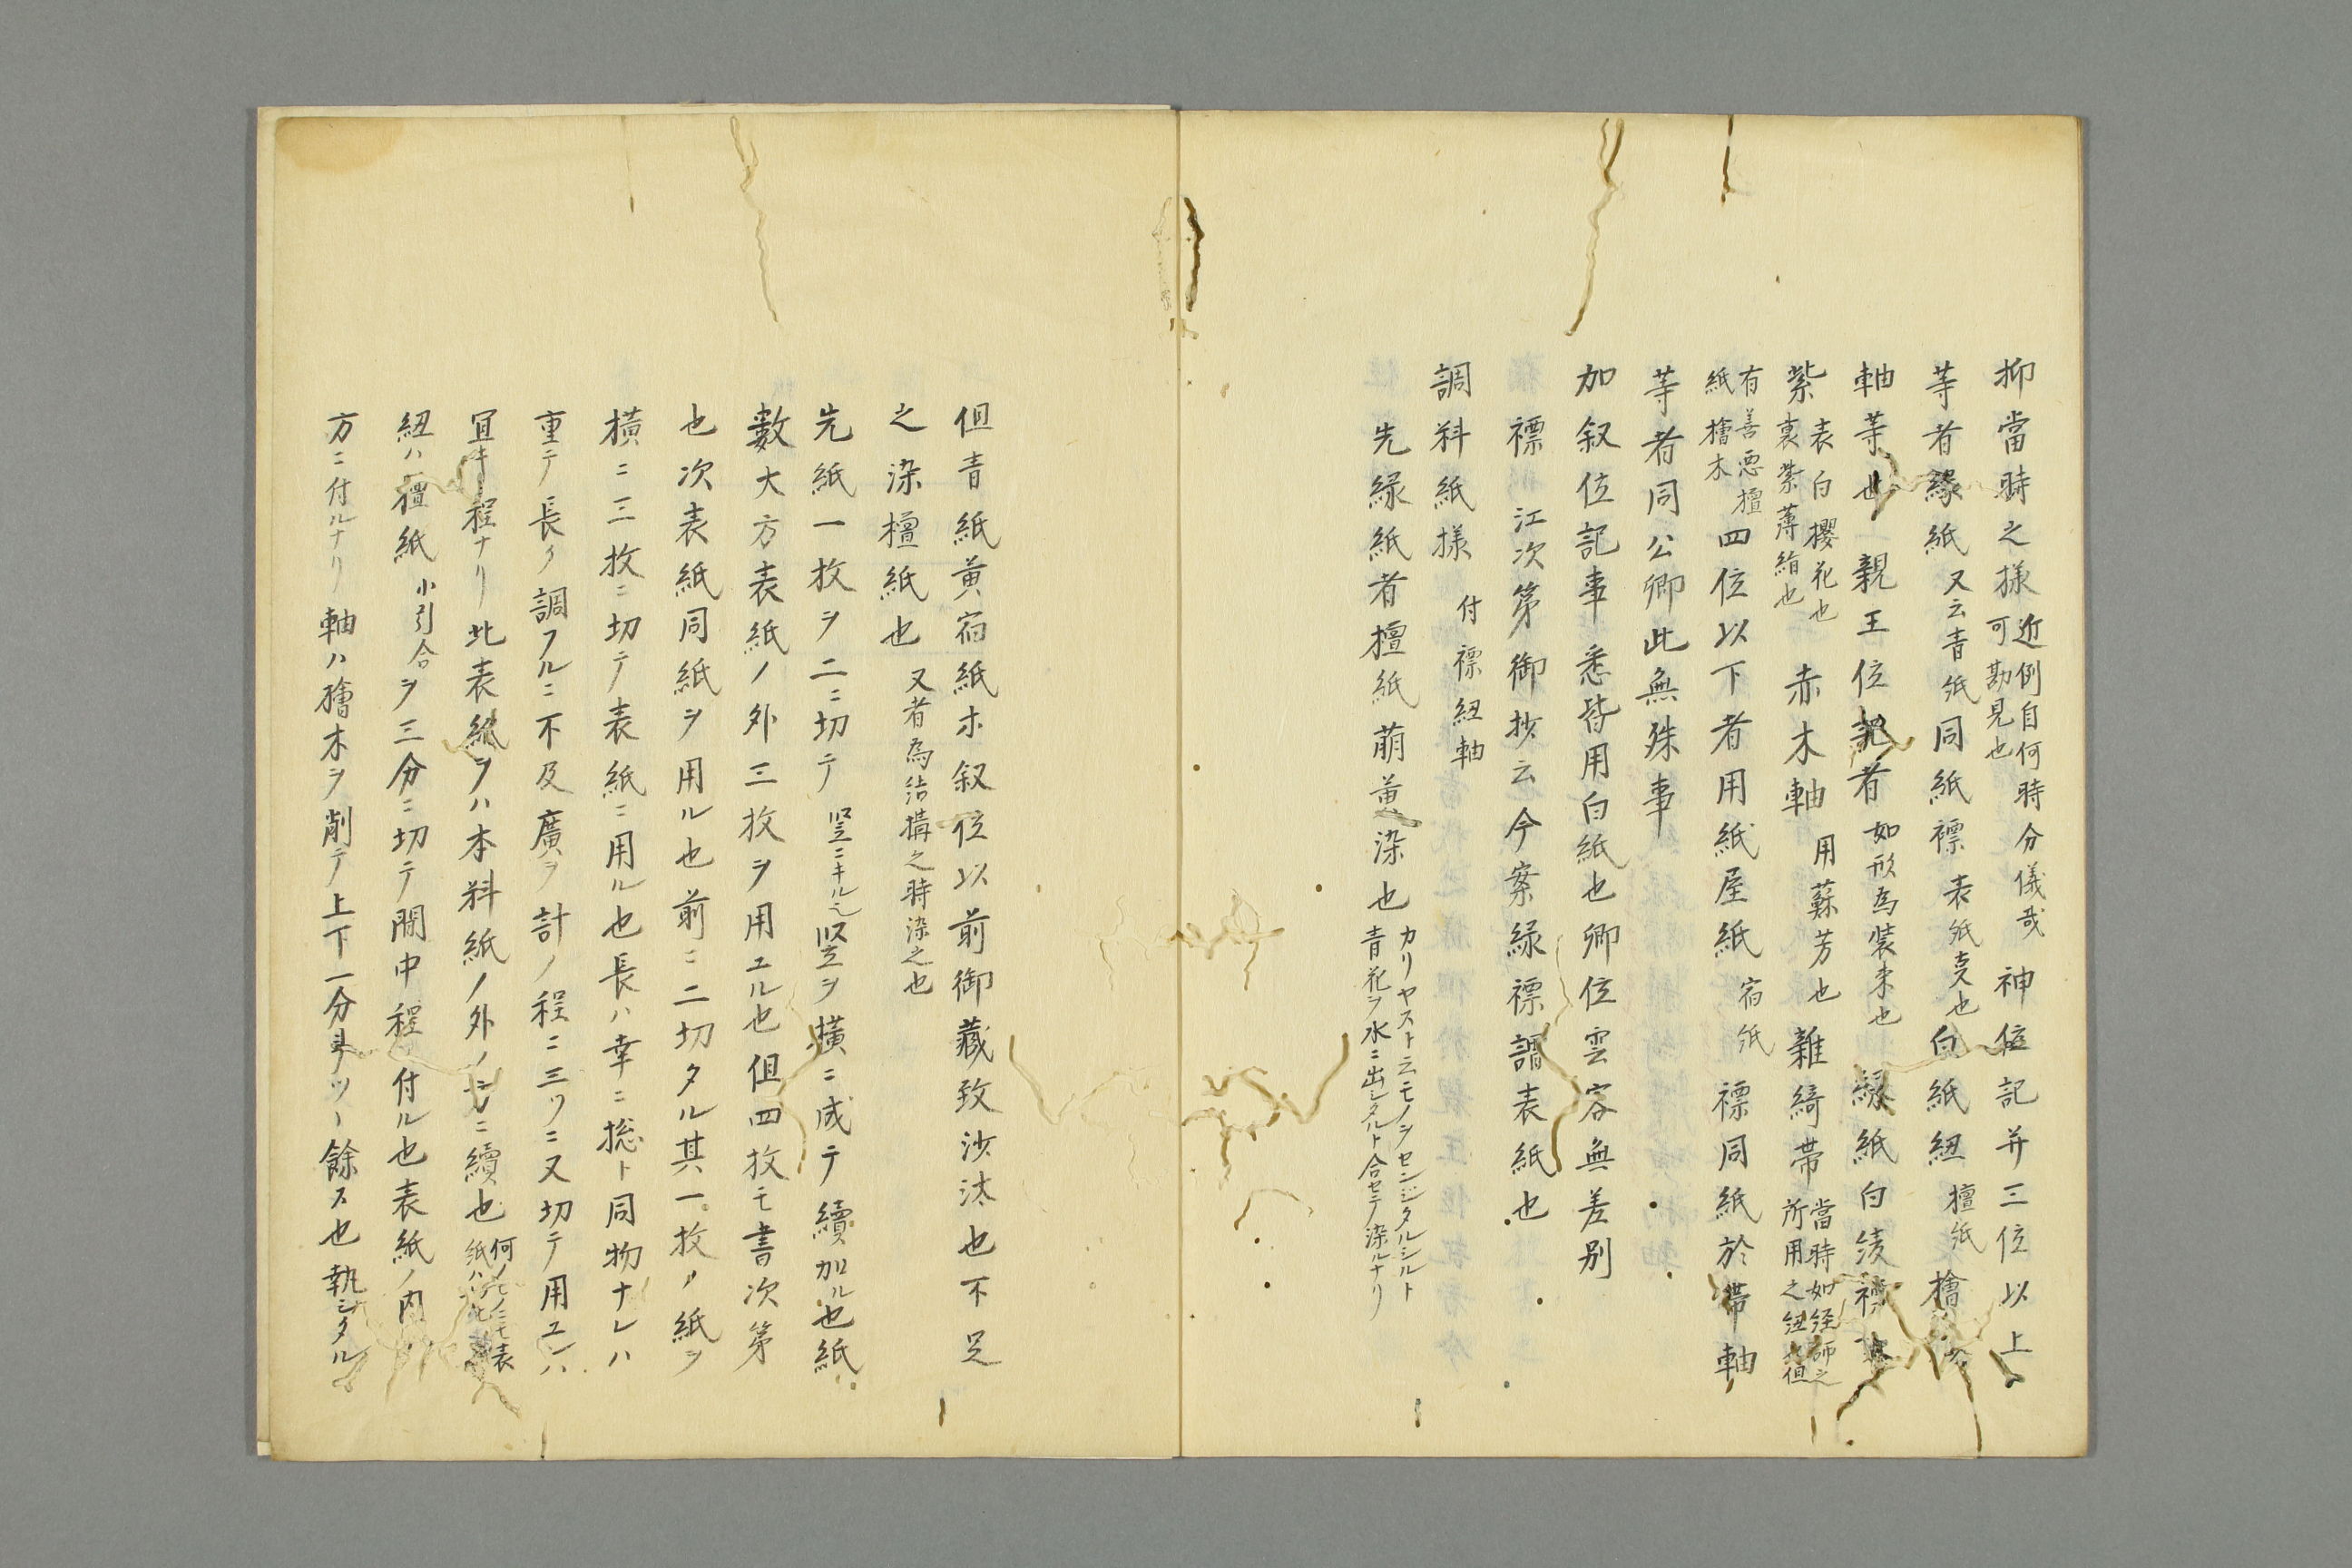 抑當時之様近例自何時分儀哉可勘見也神位記并三位以上
等者緑紙又云青紙同紙褾表紙㕝也白紙紐檀紙檜
軸等也親王位記者如形為装束也緑紙白綾褾
紫表白櫻花也裏紫薄絹也赤木軸用蘇芳也雜綺帯當時如経師之所用之紐也但
有善悪檀紙檜木四位以下者用紙屋紙宿紙褾同紙於帯軸
等者同公卿此無殊事
加叙位記事悉皆用白紙也卿位雲客無差別
褾江次第御抄云今案緑褾謂表紙也
調料紙様付褾紐軸
先緑紙者檀紙萠黄染也カリヤスト云モノヲセンジタルシルト青花ヲ水ニ出シタルト合セテ染ルナリ
但青紙黄宿紙ホ叙位以前御蔵致沙汰也不足
之染檀紙也又者為結搆之時染之也
先紙一枚ヲ二ニ切テ竪ニキル也竪ヲ横ニ成テ續加ル也紙
數大方表紙ノ外三枚ヲ用ユル也但四枚モ書次第
也次表紙同紙ヲ用ル也前ニ二切タル其一枚ノ紙ヲ
横ニ三枚ニ切テ表紙ニ用ル也長ハ幸ニ捴ト同物ナレハ
重テ長ク調フルニ不及廣ヲ計ノ程ニ三ツニ又切テ用ユレハ
冝キ程ナリ此表紙ヲハ本料紙ノ外ノ ニ續也何ノモノニモ表紙ハ此
紐ハ檀紙小引合ヲ三分ニ切テ開中程付ル也表紙ノ内
方ニ付ルナリ軸ハ檜木ヲ削テ上下一分斗ツヽ餘ス也執シタル